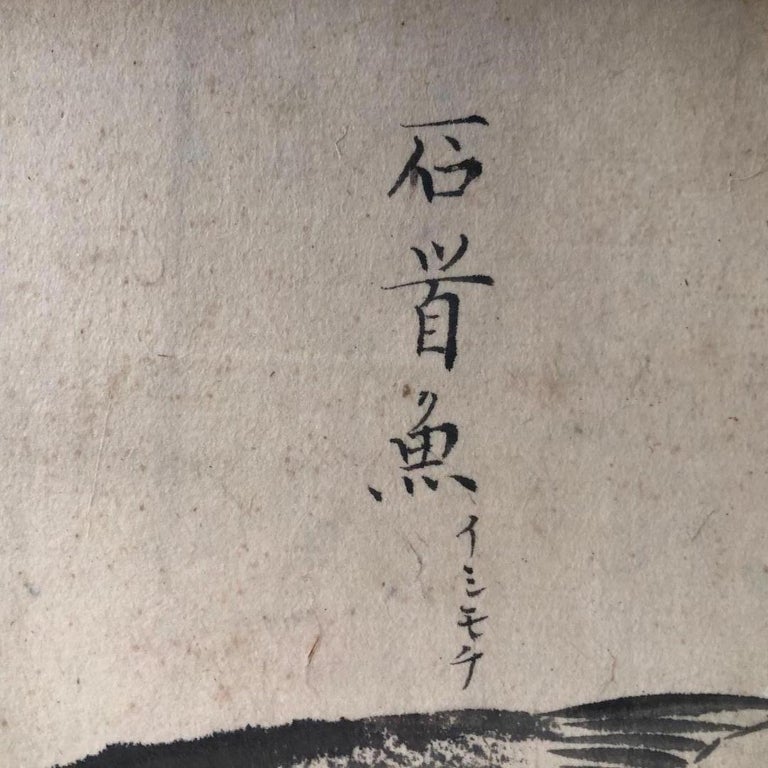 石首魚
イシモチ